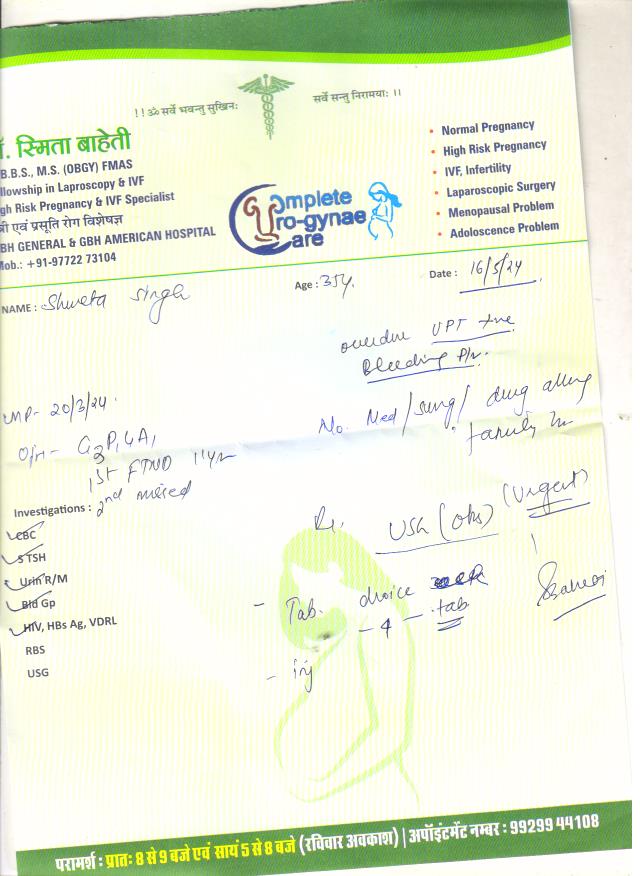 !! ॐ सर्वे भवन्तु सुखिनः सर्वे सन्तु निरामयाः ।।
. स्मिता बाहेती
B.B.S., M.S. (OBGY) FMAS
llowship in Laproscopy & IVF
gh Risk Pregnancy & IVF Specialist
त्री एवं प्रसूति रोग विशेषज्ञ
BH GENERAL & GBH AMERICAN HOSPITAL
Mob.: +91-97722 73104
Complete
Uro-gynae
Care
• Normal Pregnancy
• High Risk Pregnancy
• IVF, Infertility
• Laparoscopic Surgery
• Menopausal Problem
• Adoloscence Problem
NAME : Shweta Singh Age : 35y. Date : 16/5/24
overdue UPT +ve
Bleeding P/v.
LMP- 20/3/24.
No. Med/surg/drug allerg
family
O/H - G3P1L1A1
1st FTND 11yr
2nd missed
Investigations :
CBC
S TSH
Urin R/M
Bld Gp
HIV, HBs Ag, VDRL
RBS
USG
USG (Obs) (Urgent)
- Tab.
- 4 - tab
- inj
परामर्श : प्रातः 8 से 9 बजे एवं सायं 5 से 8 बजे (रविवार अवकाश) | अपॉइंटमेंट नम्बर : 99299 44108